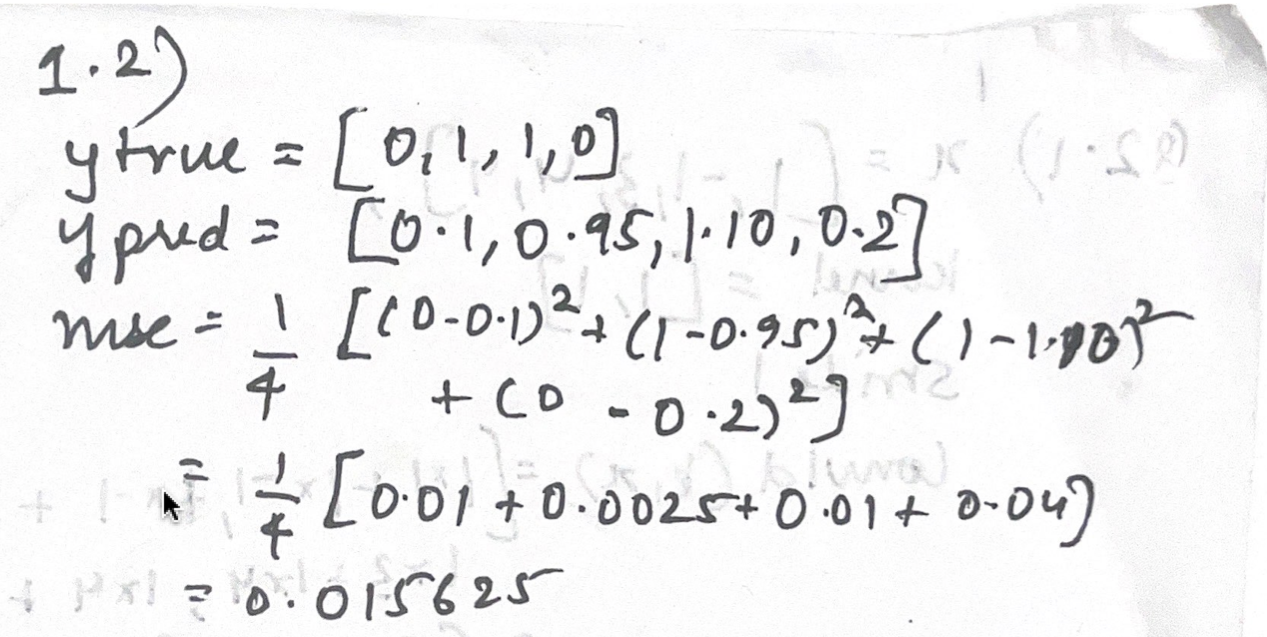 1.2)
ytrue = [0,1,1,0]
ypred = [0.1,0.95,1.10,0.2]
mse = 1/4 [(0-0.1)²+(1-0.95)²+(1-1.10)²
+(0-0.2)²]
= 1/4 [0.01+0.0025+0.01+0.04]
= 0.015625